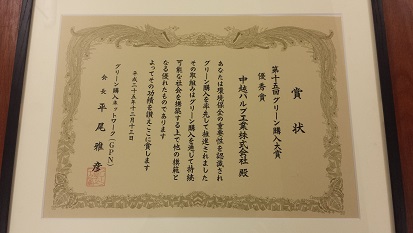 賞状
第十五回グリーン購入大賞
優秀賞
中越パルプ工業株式会社 殿
あなたは環境保全の重要性を認識され
グリーン購入を率先して推進されました
その取組みはグリーン購入を通じて持続
可能な社会を構築する上で他の模範と
なる優れたものであります
よってその功績を讃えここに賞します
平成二十五年十二月十二日
グリーン購入ネットワーク(GPN)
会長 平尾雅彦